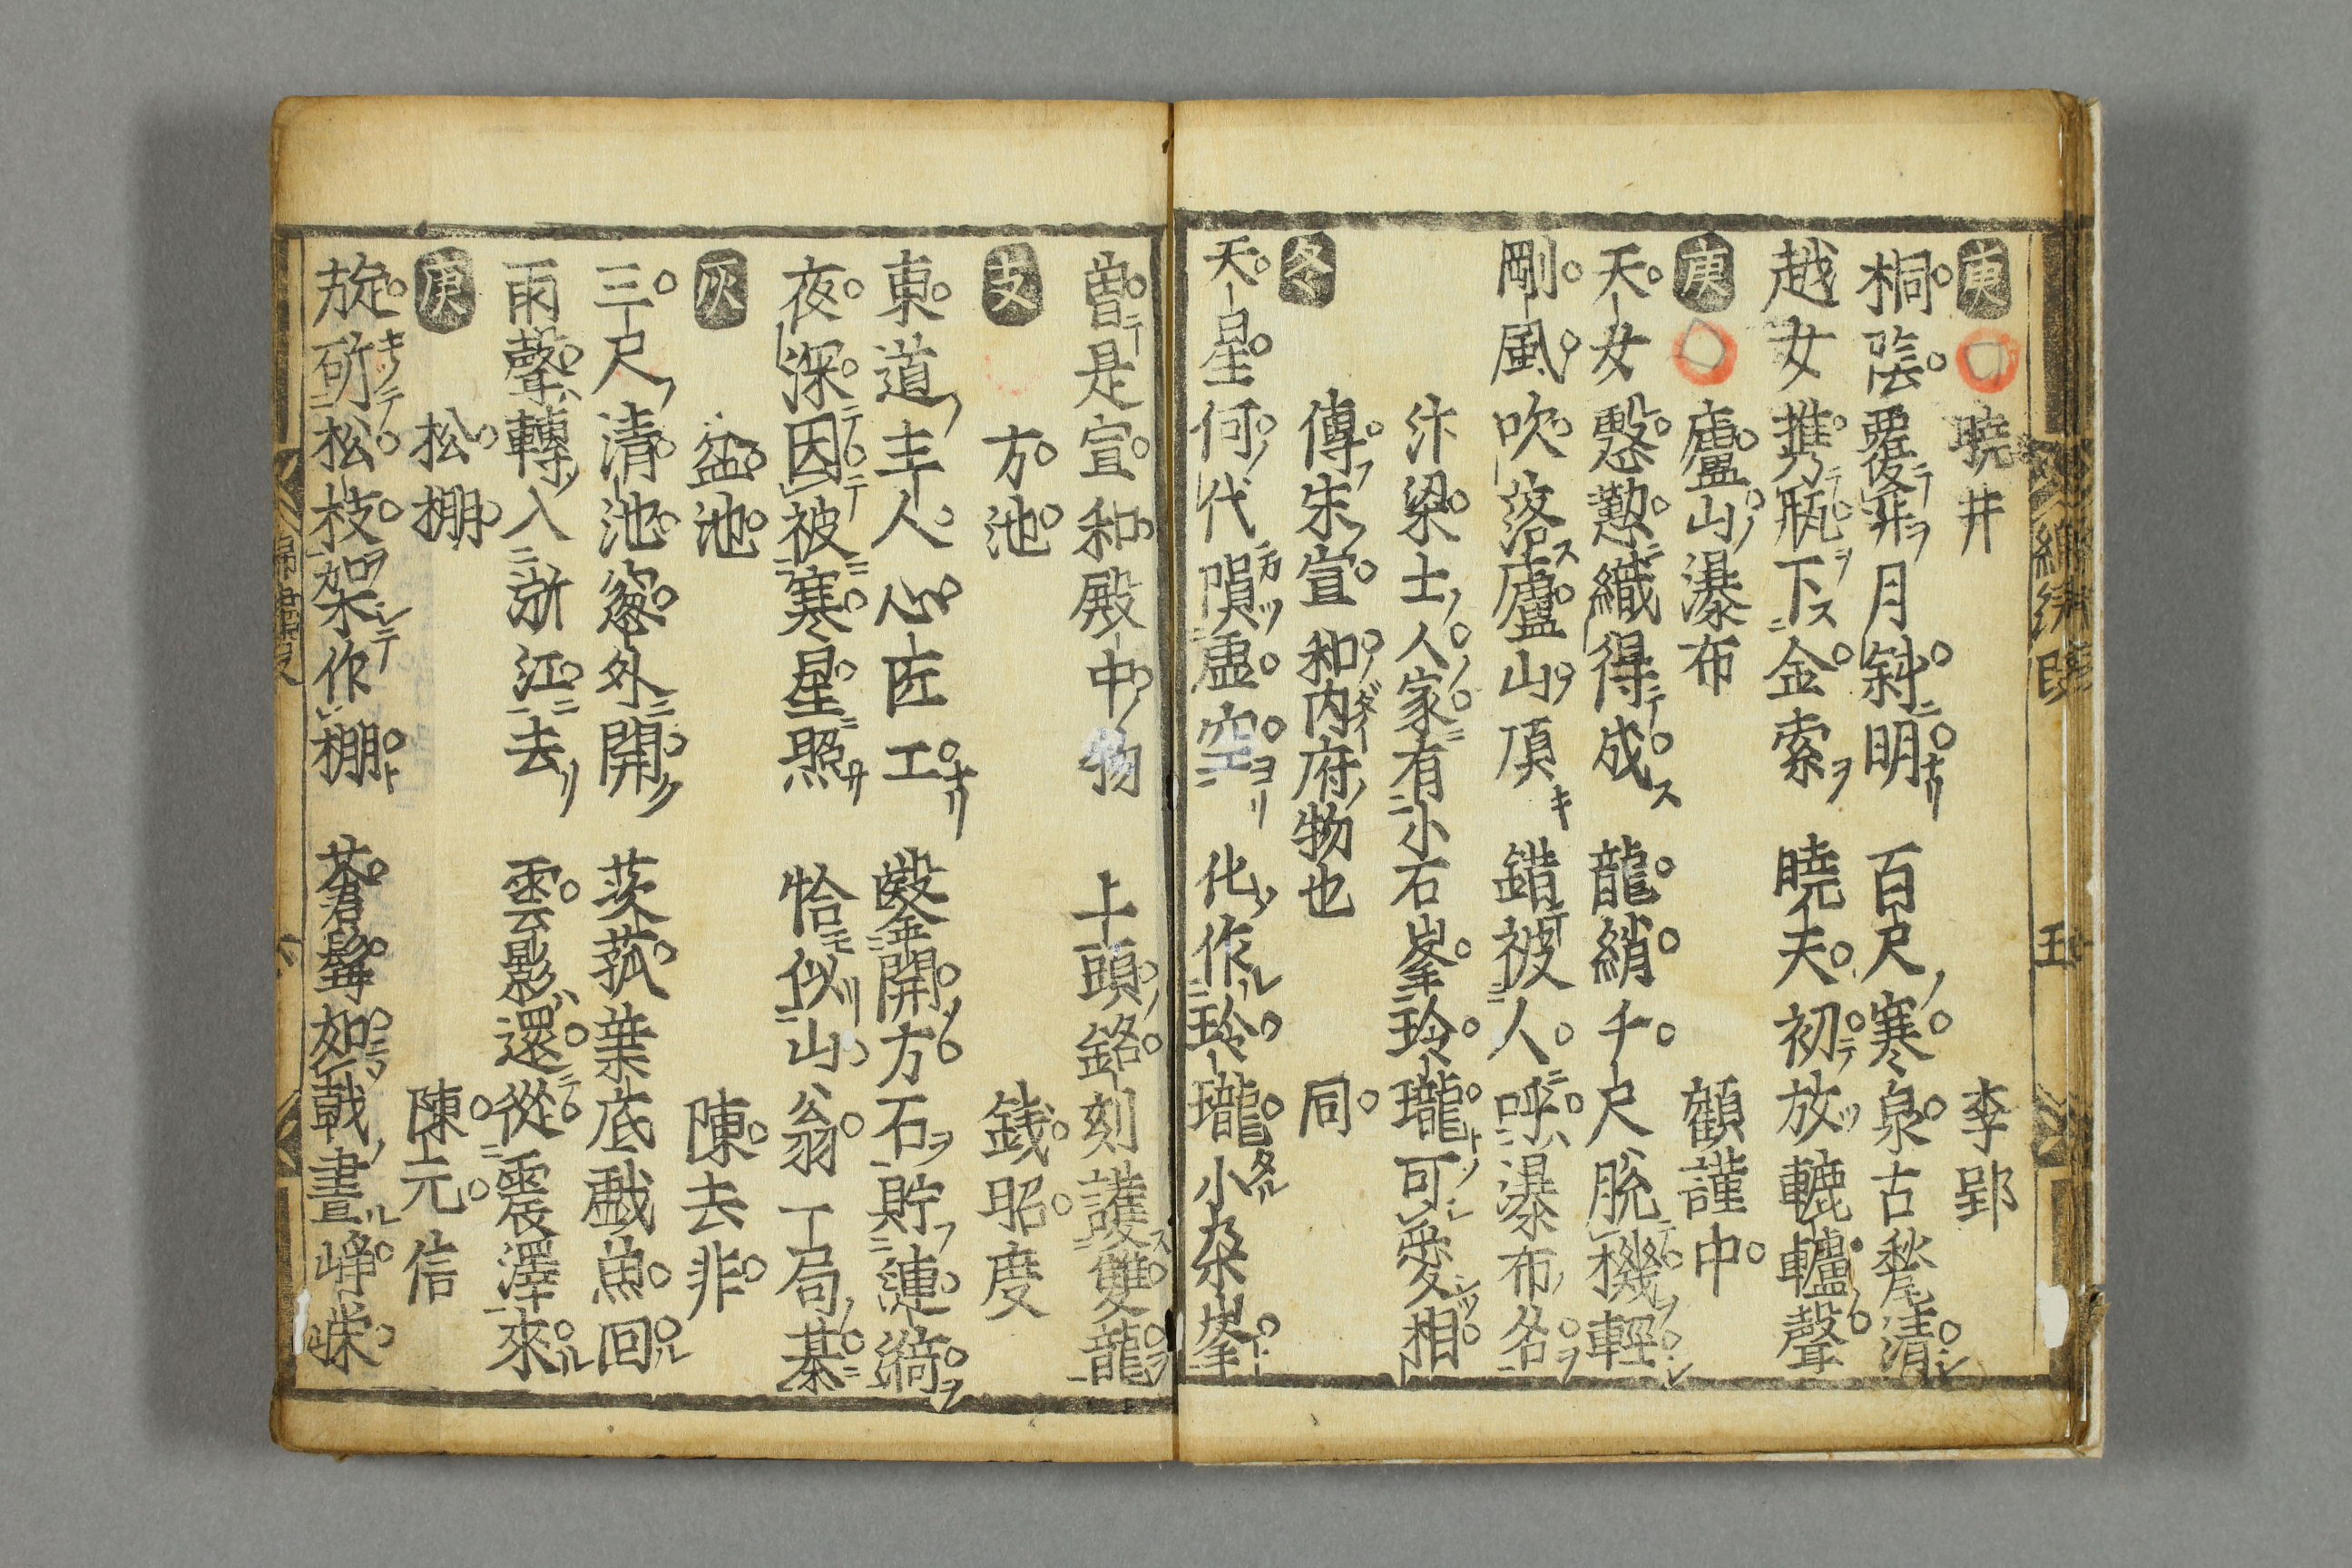 庚 曉井 李郢
桐陰覆井月斜明 百尺寒泉古甃清
越女携瓶下金索 曉天初放轆轤聲
庚 廬山瀑布 顧謹中
天女慇懃織得成 龍綃千尺脱機輕
剛風吹落廬山頂 錯被人呼瀑布名
汴梁士人家有小石峯玲瓏可愛相
傳朱宣和内府物也 同
冬
天星何代隕虚空 化作玲瓏小朶峯
曽是宣和殿中物 上頭銘刻護雙龍
支 方池 銭昭度
東道主人心匠工 鑿開方石貯漣漪
夜深因被寒星照 恰似山翁一局棊
灰 盆池 陳去非
三尺清池窓外開 茨菰葉底戯魚回
雨聲轉入浙江去 雲影還從震澤來
庚 松棚 陳元信
旋斫松枝架作棚 蒼髯如戟晝崢嶸
錦繍段
五